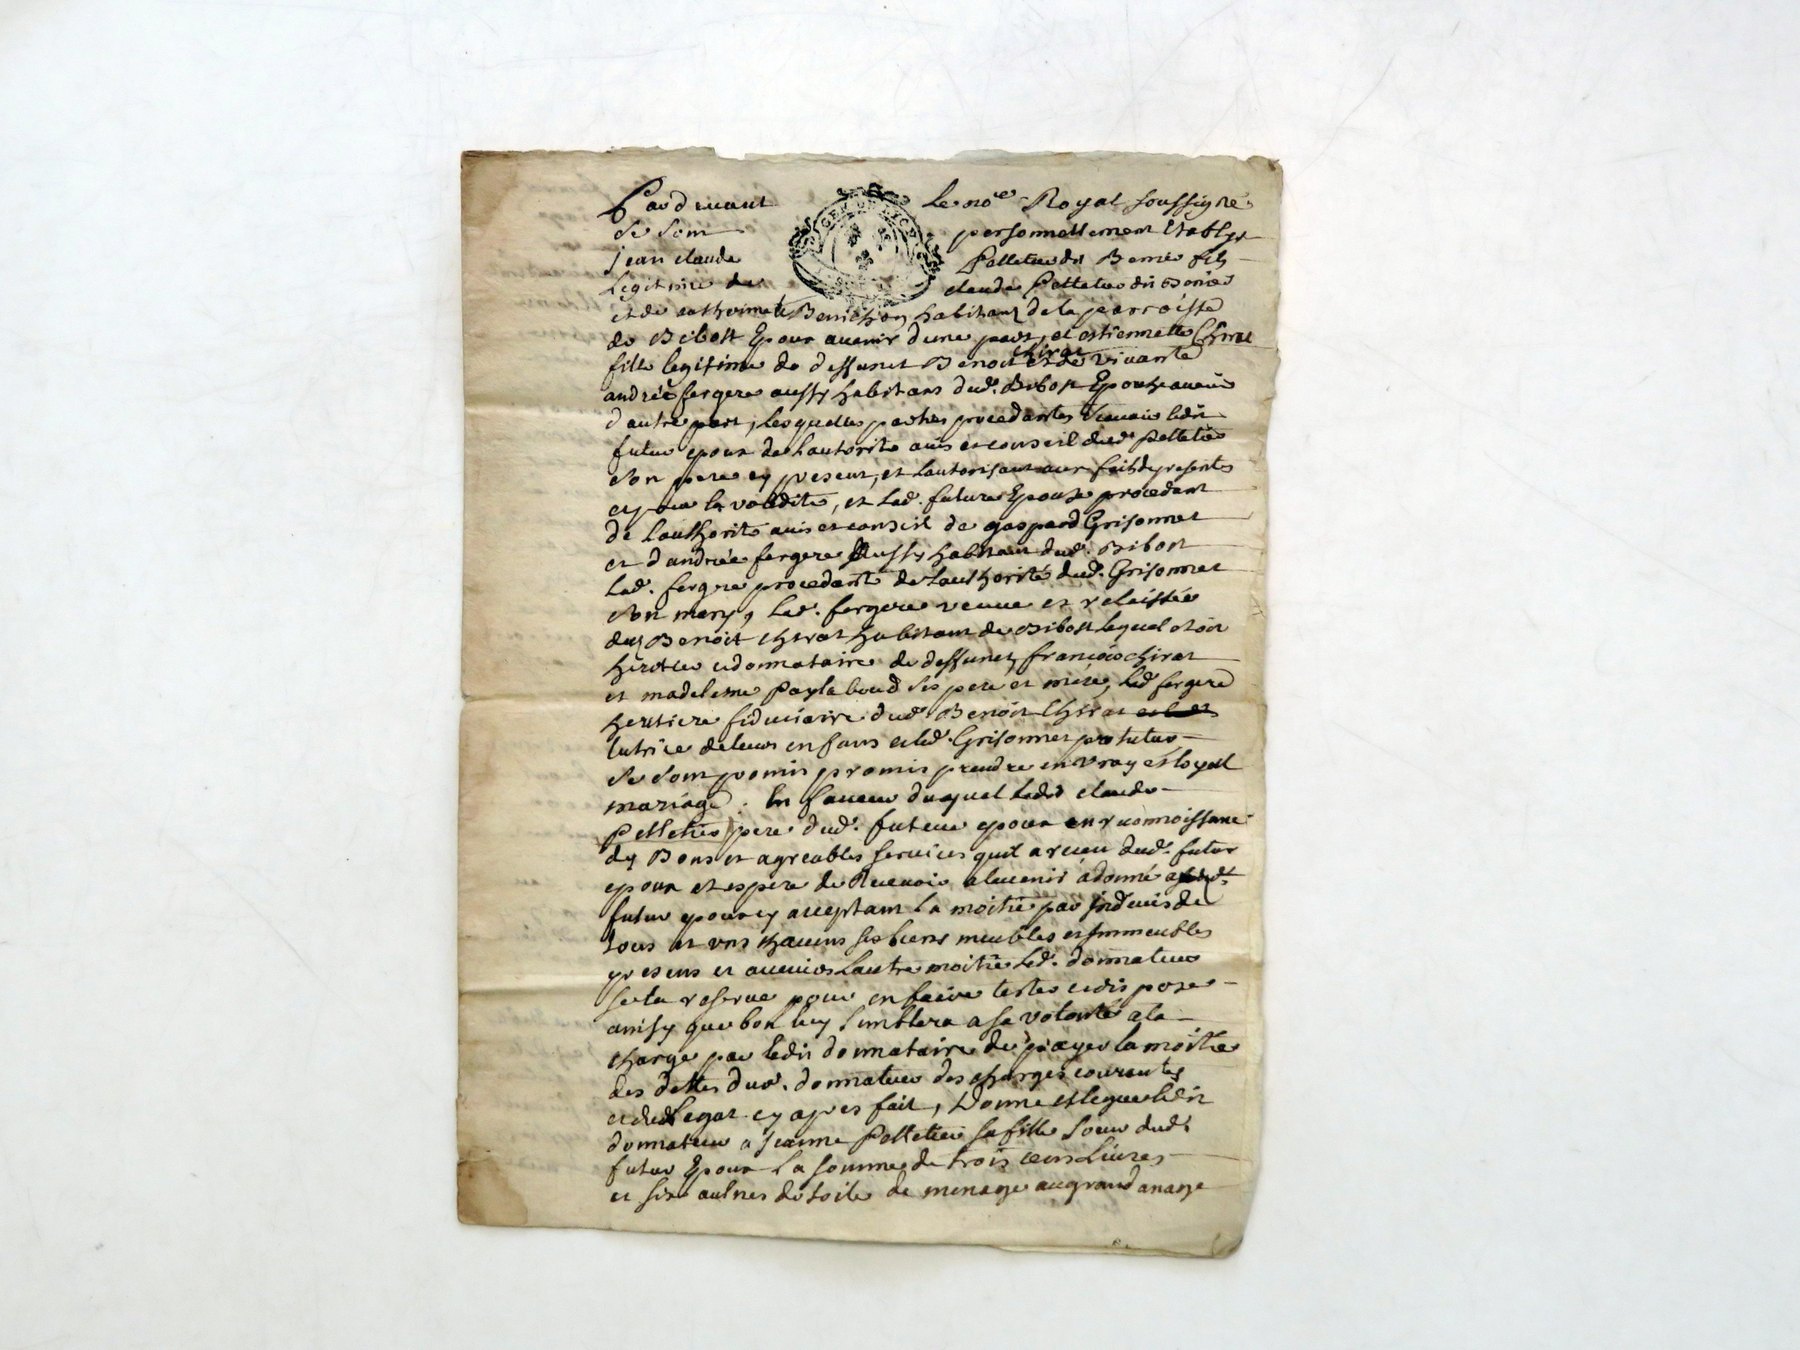 Pardevant Le no.re Royal soussigné
se sont personnellement Etablys
jean claude Pelletier dit Bernié fils
Legitime de claude Pelletier dit Bernié
et de catherinne Benichon habitans de la parroisse
de Bibost Epoux avenir d'une part, et estiennette Chirat
fille legitime de deffunct Benoit chirat et de vivante
andrée fergere aussy habitans dud. Bibost Epouse avenir
d'autre part, lesquelles parties procedantes scavoir ledit
futur epoux de l'autorité avis et conseil dud. Pelletier
son pere cy present, et l'autorisant aux fins des presentes
et pour la validité, et lad. future Epouse procedant
de l'authorité avis et conseil de gaspard Grisonnet
et d'andrée fergere aussy habitant dud. Bibost
lad. fergere procedante de l'authorité dud. Grisonnet
son mary, lad. fergere veuve et relaissée
dud. Benoit chirat habitant de Bibost lequel etoit
heritier et donnataire de deffuncts françois chirat
et madeleine ses pere et mere, lad. fergere
heritiere fiduciaire dud. Benoit Chirat
tutrice de leurs enfans et led. Grisonnet protuteur
se sont promis promis prendre en vray et loyal
mariage. En faveur duquel led. claude
Pelletier pere dud. futur epoux en reconnoissance
des Bons et agreables services quil a receu dud. futur
epoux et espere de Recevoir alavenir a donné aud.
futur epoux cy acceptant la moitié par indivis de
tous et uns chacuns ses biens meubles et immeubles
presens et avenirs lautre moitié led. donnateur
se la reserve pour en faire testes et dispose
ainsy que bon luy semblera a sa volonté a la
charge par ledit donnataire de payer la moitié
des dettes dud. donnateur des charges courantes
et du Legat cy apres fait, Donne et legue ledit
donnateur a jeanne Pelletier sa fille soeur dud.
futur Epoux la somme de trois cens Livres
et six aulnes de toile de menage au grand